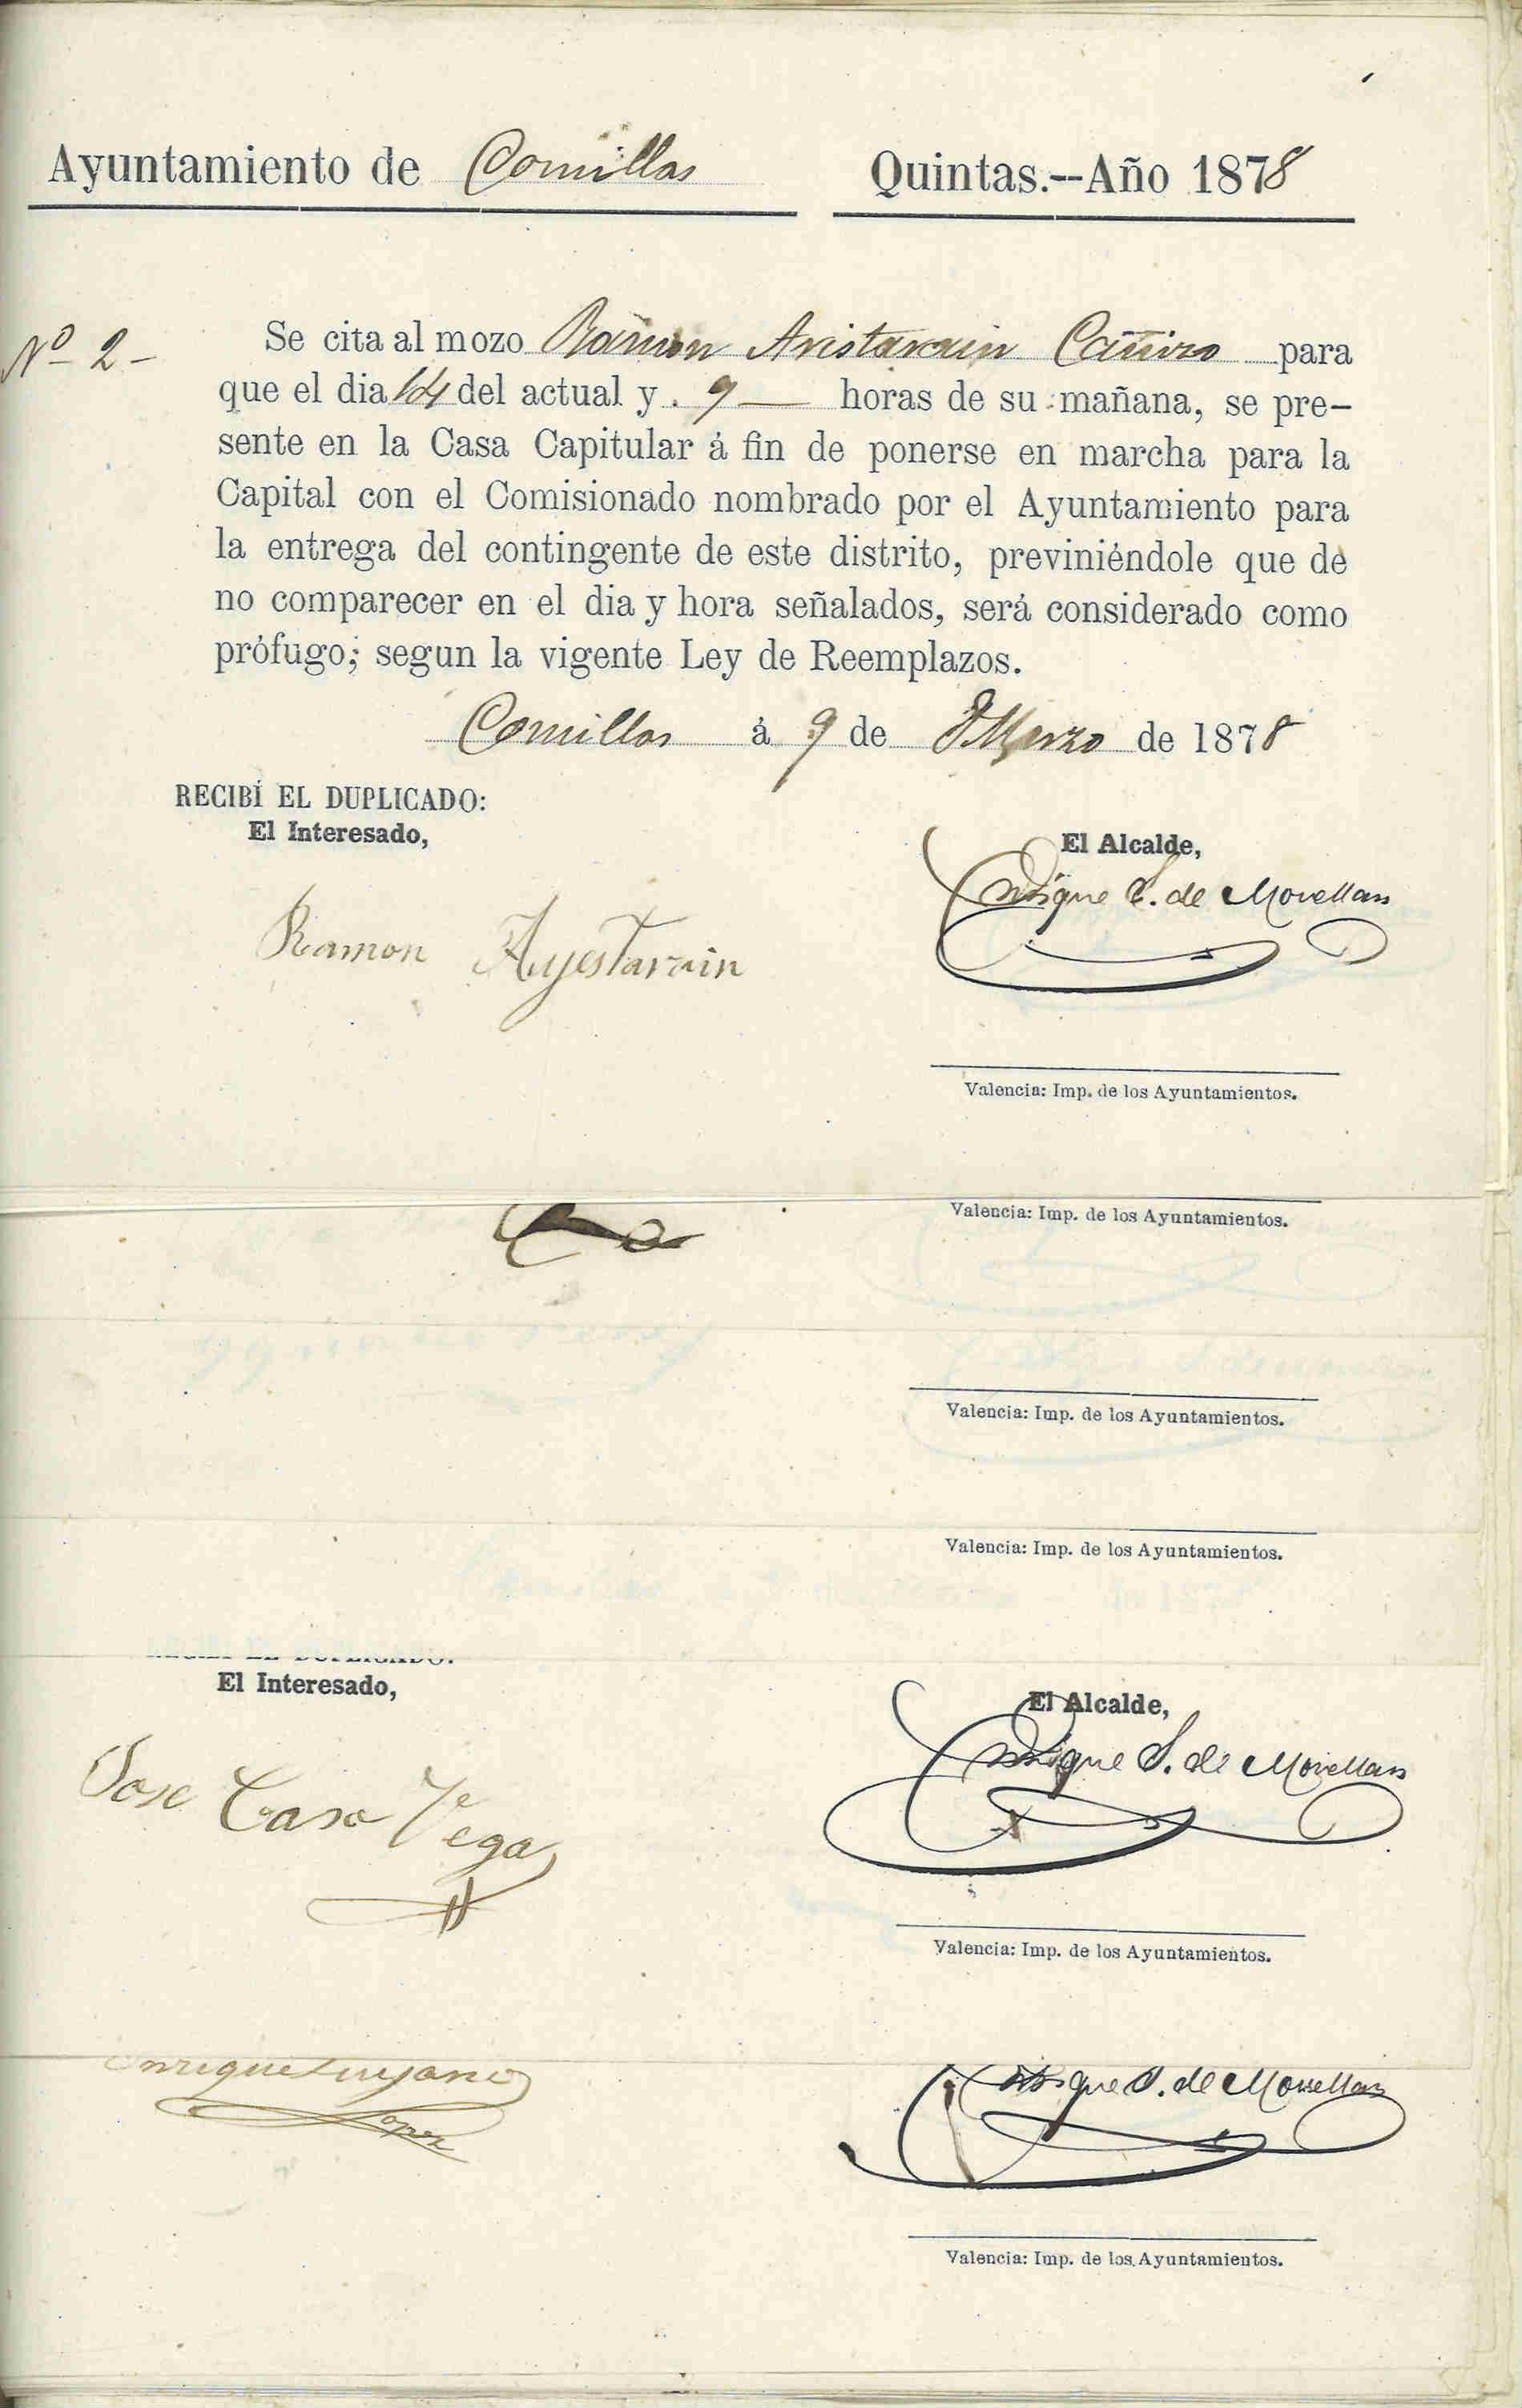 Ayuntamiento de Comillas Quintas.--Año 1878
Nº 2- Se cita al mozo Ramon Aristarain Cañizo para
que el dia 14 del actual y 9 horas de su mañana, se pre-
sente en la Casa Capitular á fin de ponerse en marcha para la
Capital con el Comisionado nombrado por el Ayuntamiento para
la entrega del contingente de este distrito, previniéndole que de
no comparecer en el dia y hora señalados, será considerado como
prófugo; segun la vigente Ley de Reemplazos.
Comillas á 9 de Marzo de 1878
RECIBÍ EL DUPLICADO:
El Interesado,
El Alcalde,
Enrique S. de Movellan
Ramon Ayestarain
Valencia: Imp. de los Ayuntamientos.
Valencia: Imp. de los Ayuntamientos.
Valencia: Imp. de los Ayuntamientos.
Valencia: Imp. de los Ayuntamientos.
El Interesado,
El Alcalde,
Enrique S. de Movellan
Jose Caso Vega
Valencia: Imp. de los Ayuntamientos.
Enrique
Lopez
Enrique S. de Movellan
Valencia: Imp. de los Ayuntamientos.